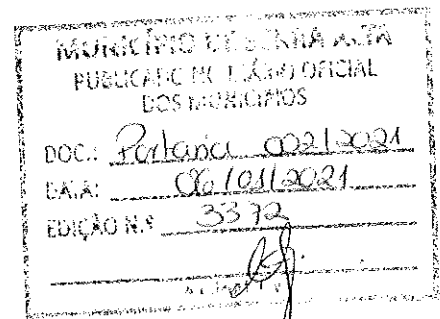 MUNICÍPIO DE SERRA ALTA
PUBLICADO NO DIÁRIO OFICIAL
DOS MUNICÍPIOS
DOC.: Portaria 002/2021
DATA: 06/01/2021
EDIÇÃO N.º 3372